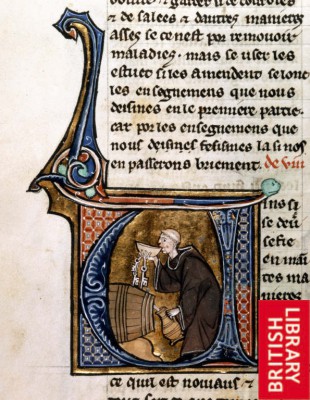 garder si de
⁊ de salees ⁊ dautres manieres
asses se ce nest por remouuoir
maladies. mais se user les
estuet si les amendent selonc
les ensegnemens que nous
deismes en le premiere partie.
car por les ensegnemens que
nous deismes fesismes la si nos
en passerons briement. de vin
ins si
se
en mai
tes ma
nieres
ce quil est nouiaus ⁊
BRITISH
LIBRARY